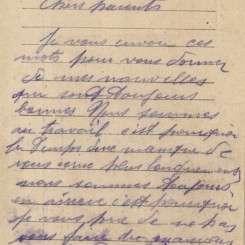 Chers parents
Je vous envoi ces
mots pour vous donner
de mes nouvelles
qui sont toujours
bonnes Nous sommes
au travail c'est pourquoi
le temps me manque de
vous plus longuement
nous sommes toujours
en c'est pourquoi
je vous prie de ne pas
vous faire de